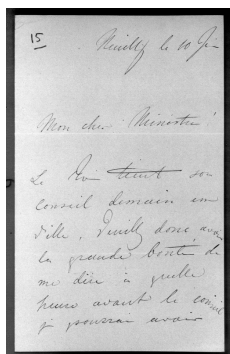 15
Neuilly le 10
Mon cher Ministre
Le Roi tient son
Conseil demain en
ville. Veuillez donc avoir
la grande bonté de
me dire à quelle
heure avant le conseil
je pourrai avoir